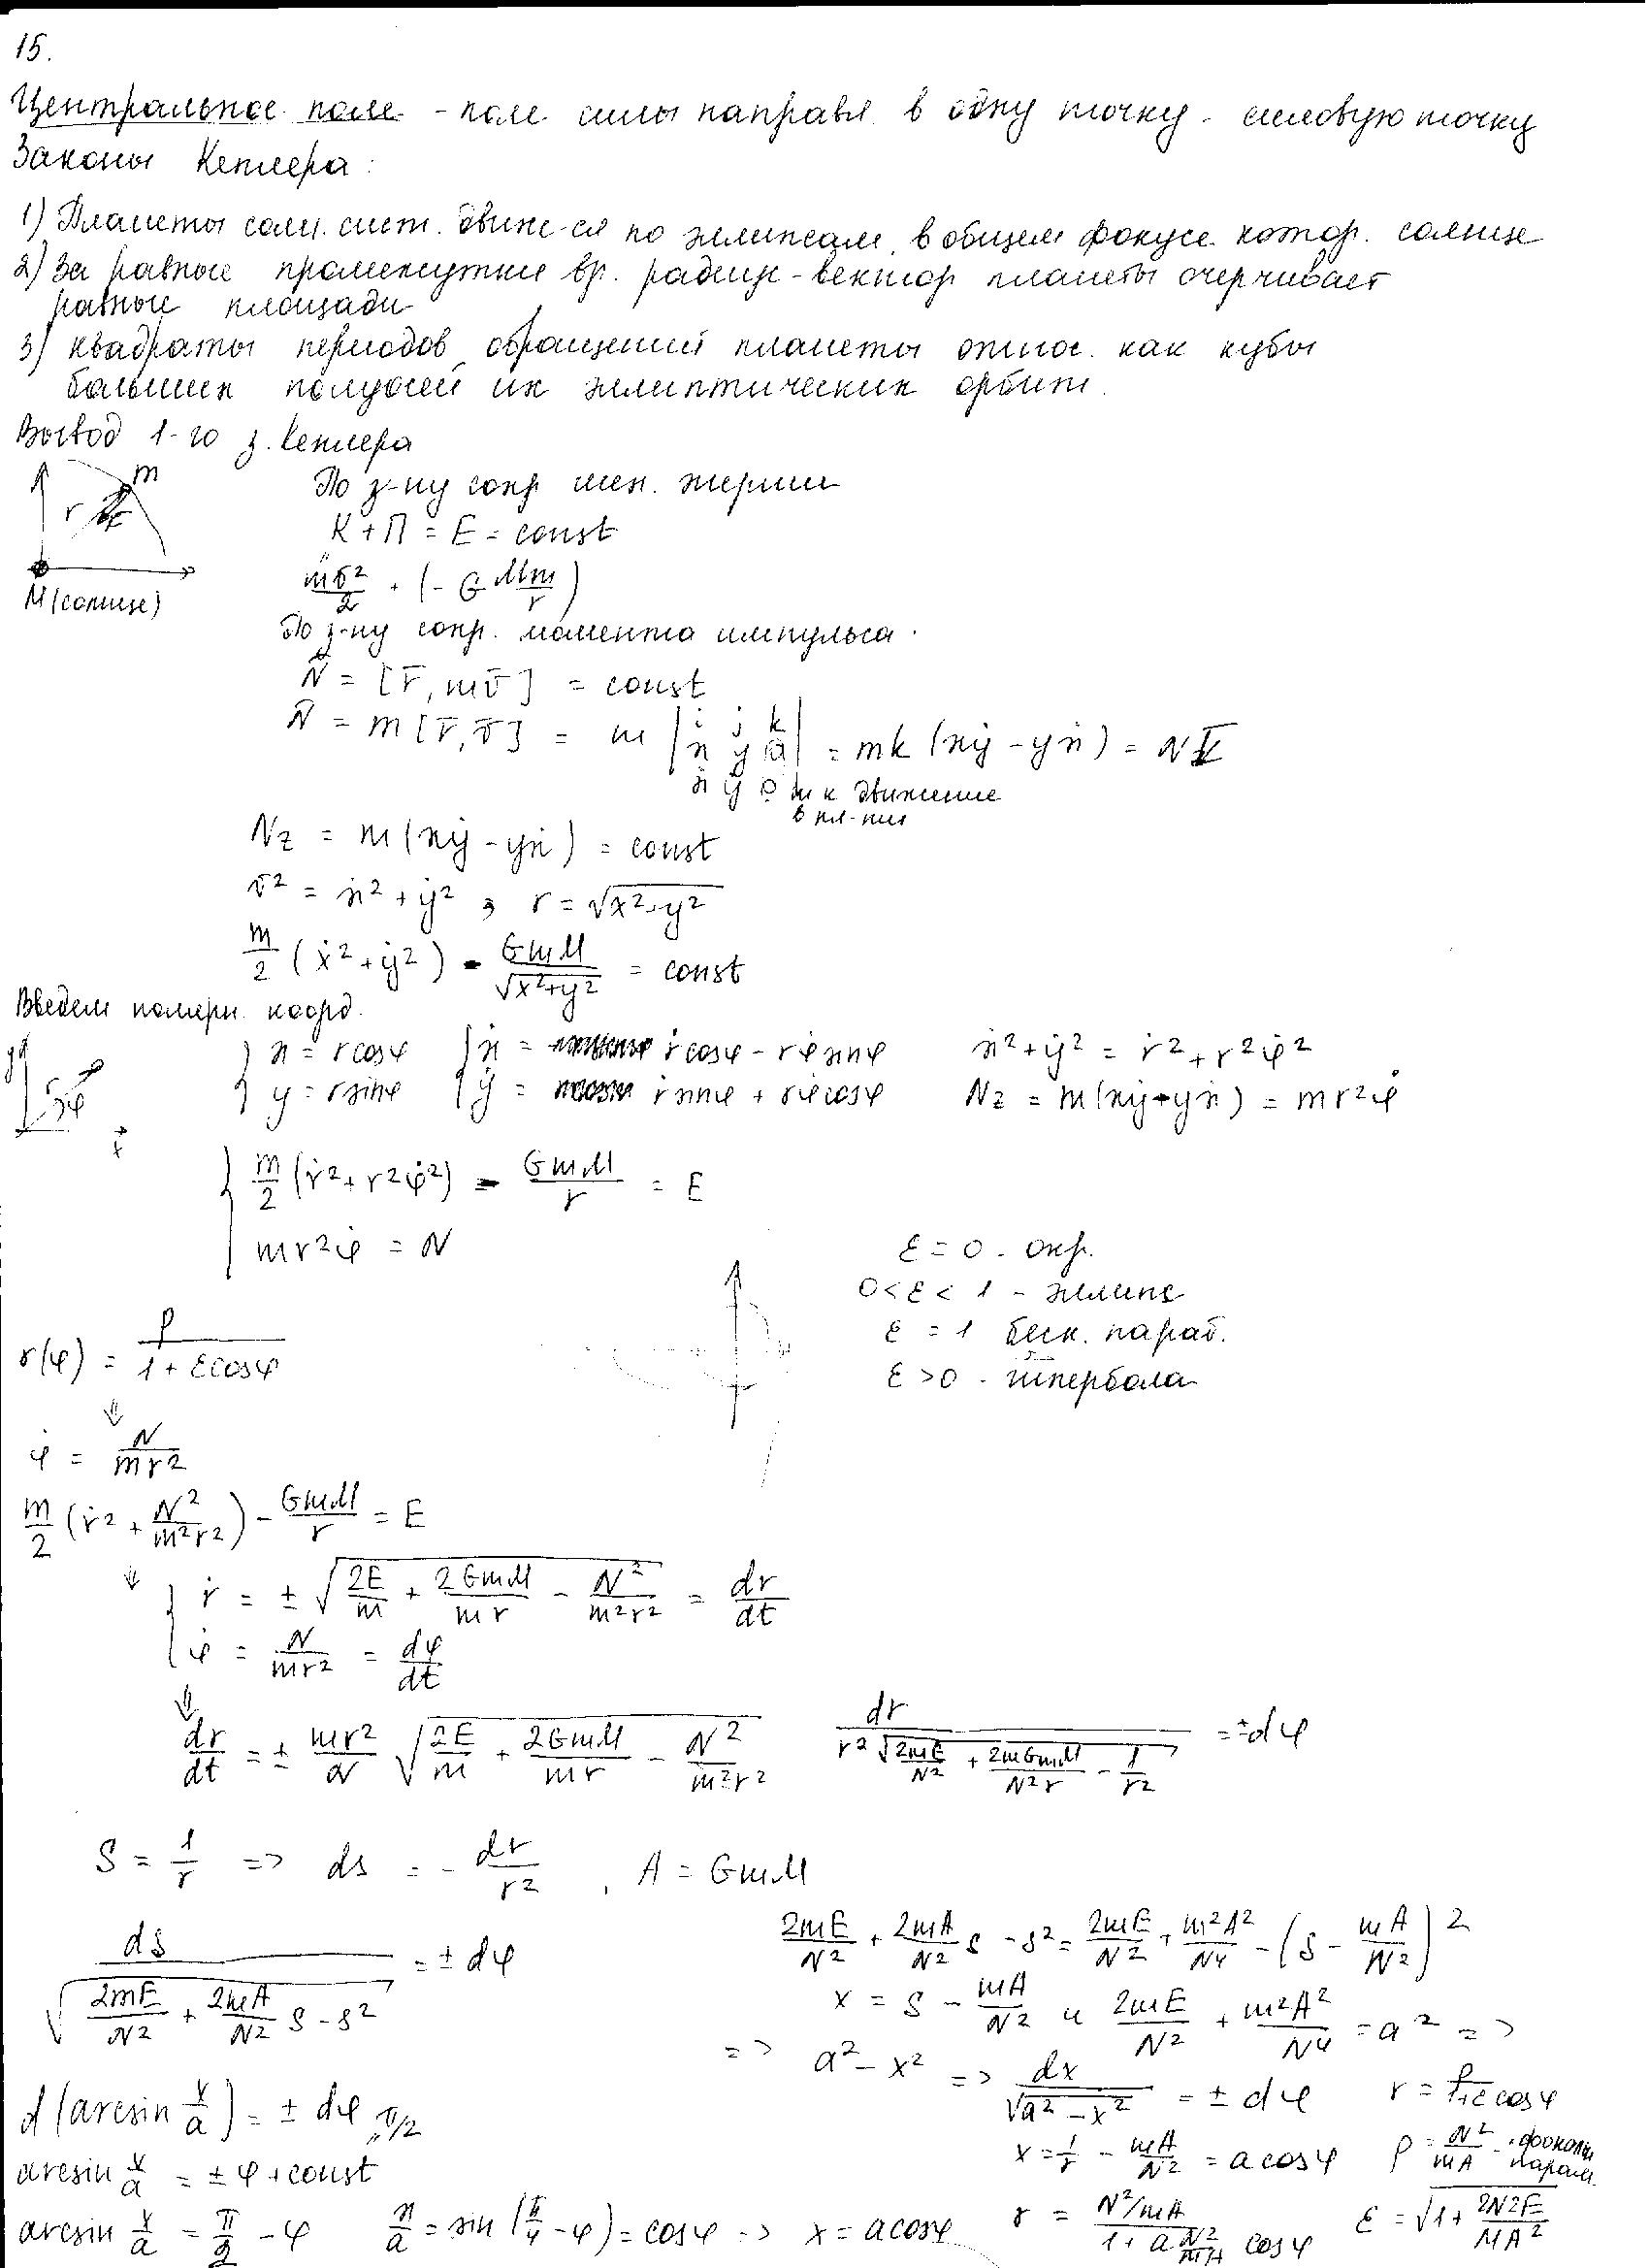 15.
Центральное поле - поле силы направл. в одну точку - силовую точку
Законы Кеплера:
1) Планеты солн. сист. движ-ся по элипсам, в общем фокусе котор. солнце
2) За равные промежутки вр. радиус-вектор планеты очерчивает
равные площади
3) квадраты периодов обращений планеты относ. как кубы
больших полуосей их элиптических орбит.
Вывод 1-го з. Кеплера
m
r
M (солнце)
По з-ну сохр мех. энергии
K + П = E = const
mv̄²/2 + (- G Mm/r)
По з-ну сохр. момента импульса.
N̄ = [r̄, mv̄] = const
N̄ = m[r̄, v̄] = m |i j k; x y 0; ẋ ẏ 0| = mk (xẏ - yẋ) = Nk̄
т к движение
в пл-ти
Nz = m(xẏ - yẋ) = const
v̄² = ẋ² + ẏ² ; r = √(x²+y²)
m/2 (ẋ² + ẏ²) - GmM/√(x²+y²) = const
Введем полярн. коорд.
y
φ
x
{ x = r cosφ { ẋ = ṙ cosφ - rφ̇ sinφ ẋ² + ẏ² = ṙ² + r²φ̇²
{ y = r sinφ { ẏ = ṙ sinφ + rφ̇ cosφ Nz = m(xẏ - yẋ) = mr²φ̇
{ m/2 (ṙ² + r²φ̇²) - GmM/r = E
{ mr²φ̇ = N
ε = 0 - окр.
0 < ε < 1 - элипс
ε = 1 беск. параб.
ε > 0 - гипербола
r(φ) = p/(1 + εcosφ)
⇓
φ̇ = N/mr²
m/2 (ṙ² + N²/m²r²) - GmM/r = E
⇓ { ṙ = ± √(2E/m + 2GmM/mr - N²/m²r²) = dr/dt
{ φ̇ = N/mr² = dφ/dt
⇓
dr/dt = ± mr²/N √(2E/m + 2GmM/mr - N²/m²r²) dr/(r²√(2mE/N² + 2mGmM/N²r - 1/r²)) = ±dφ
S = 1/r => ds = - dr/r² , A = GmM
ds/√(2mE/N² + 2mA/N² s - s²) = ± dφ
2mE/N² + 2mA/N² s - s² = 2mE/N² + m²A²/N⁴ - (s - mA/N²)²
x = s - mA/N² и 2mE/N² + m²A²/N⁴ = a² =>
=> a² - x² => dx/√(a² - x²) = ± dφ r = p/(1+ε cosφ)
d(arcsin x/a) = ± dφ
π/2
x = 1/r - mA/N² = a cosφ p = N²/mA - фокальн парам.
arcsin x/a = ± φ + const
arcsin x/a = π/2 - φ x/a = sin(π/4 - φ) = cosφ => x = a cosφ
r = (N²/mA)/(1 + a N²/mA cosφ) ε = √(1 + 2N²E/MA²)